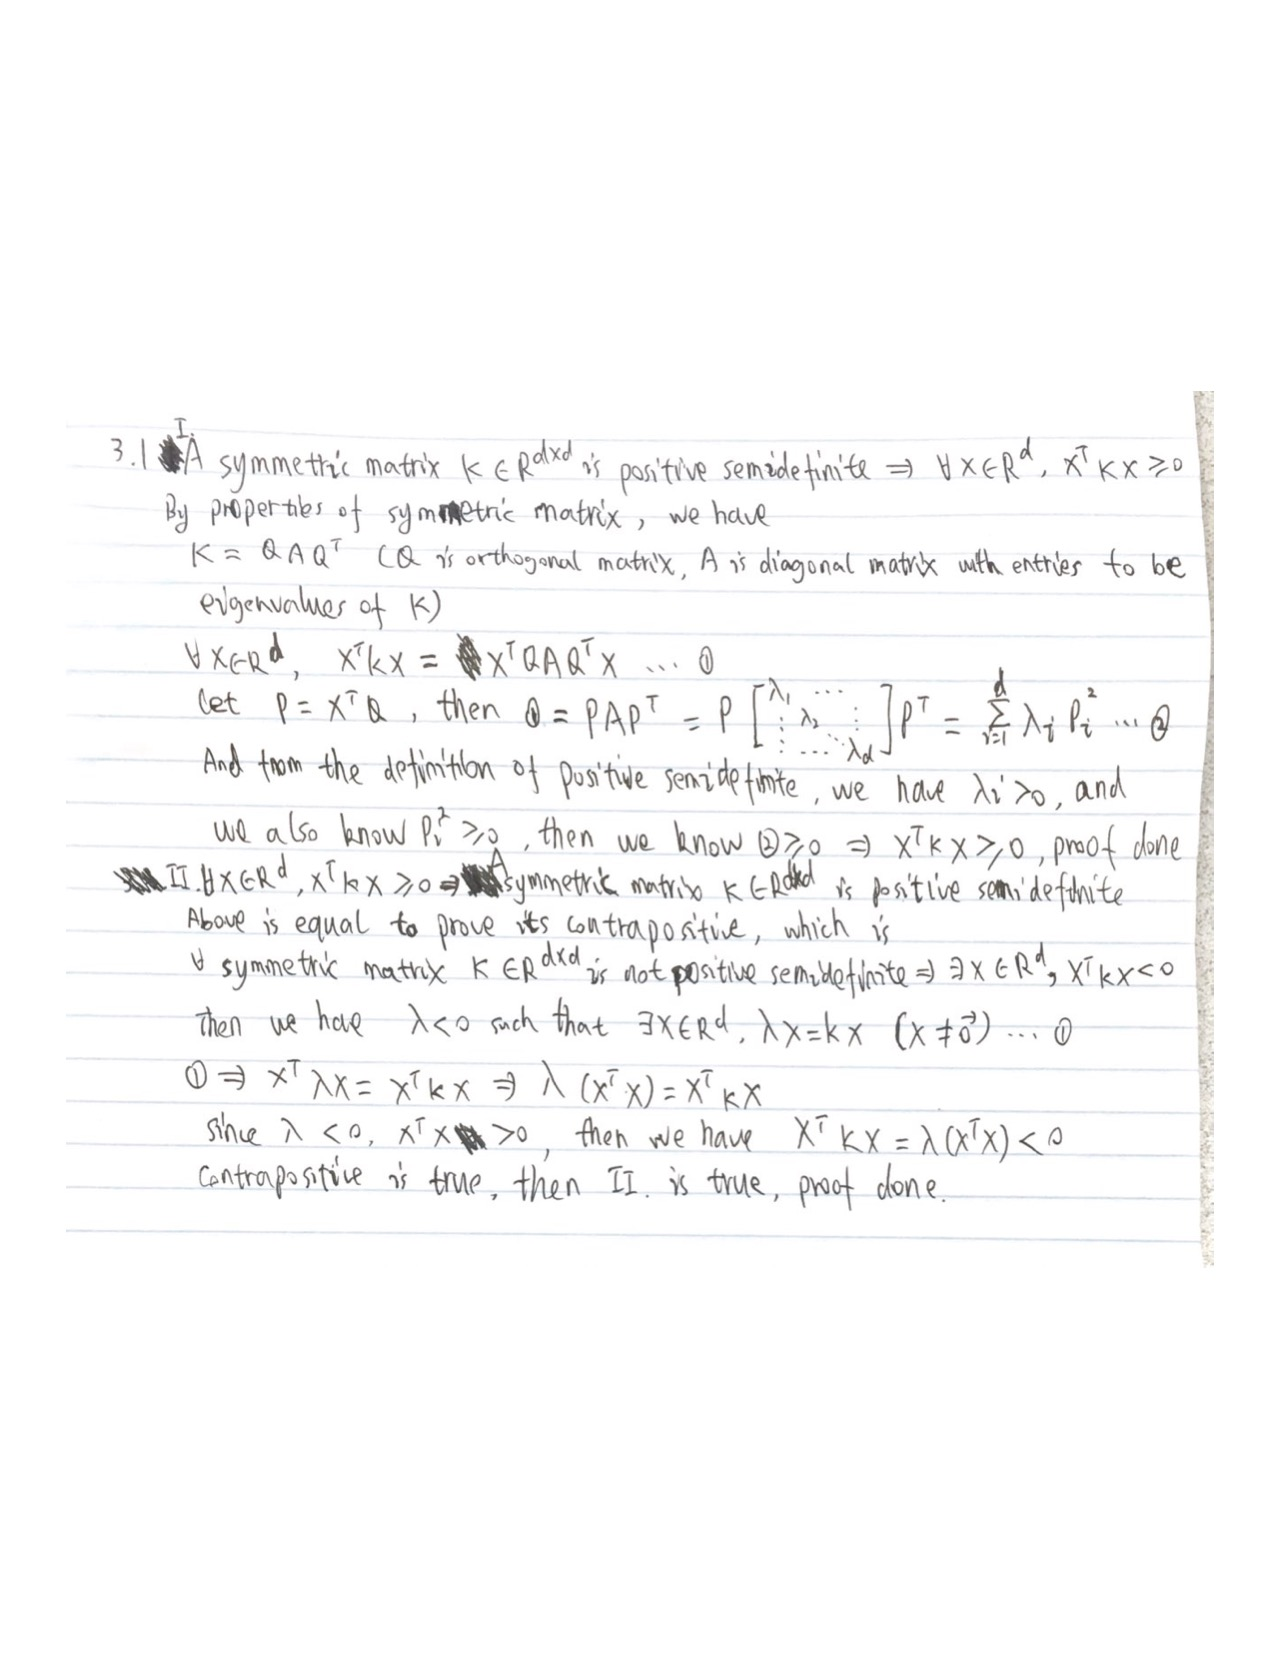 3.1 I. A symmetric matrix K ∈ R^{d×d} is positive semidefinite ⇒ ∀ x ∈ R^d, x^T K x ≥ 0
By properties of symmetric matrix, we have
K = Q A Q^T (Q is orthogonal matrix, A is diagonal matrix with entries to be
eigenvalues of K)
∀ x ∈ R^d, x^T K x = x^T Q A Q^T x ... ①
Let P = x^T Q, then ① = P A P^T = P [λ_1 ... ⋮ λ_2 ⋮ ⋮ ... λ_d] P^T = Σ_{i=1}^{d} λ_i P_i^2 ... ②
And from the definition of positive semidefinite, we have λ_i ≥ 0, and
we also know P_i^2 ≥ 0, then we know ② ≥ 0 ⇒ x^T K x ≥ 0, proof done
II. ∀ x ∈ R^d, x^T K x ≥ 0 ⇒ A symmetric matrix K ∈ R^{d×d} is positive semidefinite
Above is equal to prove its contrapositive, which is
∀ symmetric matrix K ∈ R^{d×d} is not positive semidefinite ⇒ ∃ x ∈ R^d, x^T K x < 0
Then we have λ < 0 such that ∃ x ∈ R^d, λx = Kx (x ≠ 0⃗) ... ①
① ⇒ x^T λx = x^T K x ⇒ λ (x^T x) = x^T K x
since λ < 0, x^T x > 0, then we have x^T K x = λ(x^T x) < 0
Contrapositive is true, then II. is true, proof done.